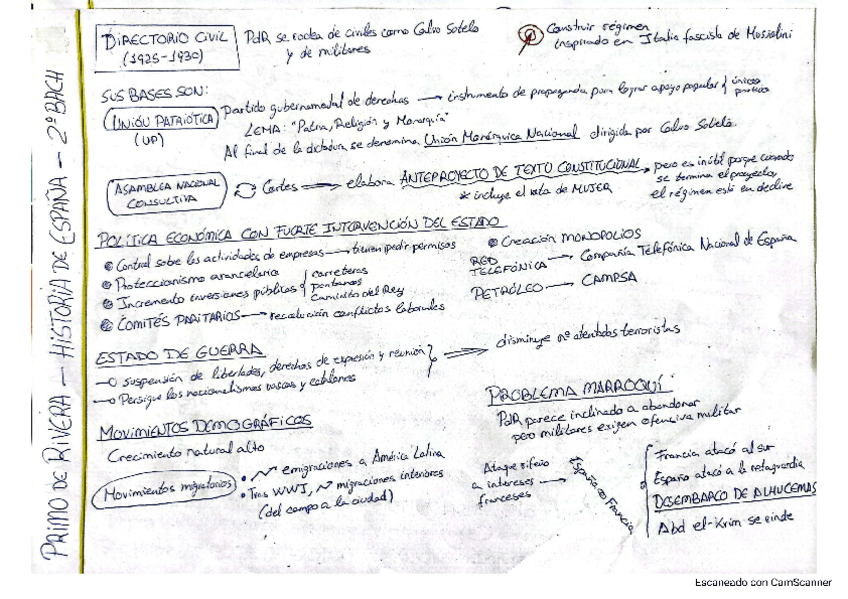 PRIMO DE RIVERA — HISTORIA DE ESPAÑA — 2º BACH
DIRECTORIO CIVIL
(1925-1930)
PdR se rodea de civiles como Calvo Sotelo
y de militares
Construir régimen
inspirado en Italia fascista de Mussolini
SUS BASES SON:
UNIÓN PATRIÓTICA
(UP)
Partido gubernamental de derechas → instrumento de propaganda para lograr apoyo popular
único
partido
LEMA: "Patria, Religión y Monarquía"
Al final de la dictadura se denomina Unión Monárquica Nacional dirigida por Calvo Sotelo.
ASAMBLEA NACIONAL
CONSULTIVA
Cortes ⇒ elabora ANTEPROYECTO DE TEXTO CONSTITUCIONAL
* incluye el voto de MUJER
pero es inútil porque cuando
se termina el proyecto,
el régimen está en declive
POLÍTICA ECONÓMICA CON FUERTE INTERVENCIÓN DEL ESTADO
Control sobre las actividades de empresas → tienen pedir permisos
Proteccionismo arancelario
Incremento inversiones públicas
carreteras
pantanos
Caminito del Rey
COMITÉS PARITARIOS → resolución conflictos laborales
Creación MONOPOLIOS
RED
TELEFÓNICA → Compañía Telefónica Nacional de España
PETRÓLEO → CAMPSA
ESTADO DE GUERRA
suspensión de libertades, derechos de expresión y reunión
Persigue los nacionalismos vascos y catalanes
disminuye nº atentados terroristas
MOVIMIENTOS DEMOGRÁFICOS
Crecimiento natural alto
Movimientos migratorios
emigraciones a América Latina
Tras WWI, migraciones interiores
(del campo a la ciudad)
PROBLEMA MARROQUÍ
PdR parece inclinado a abandonar
pero militares exigen ofensiva militar
Ataque rifeño
a intereses
franceses
España Francia
Francia atacó al sur
España atacó a la retaguardia
DESEMBARCO DE ALHUCEMAS
Abd el-Krim se rinde
Escaneado con CamScanner